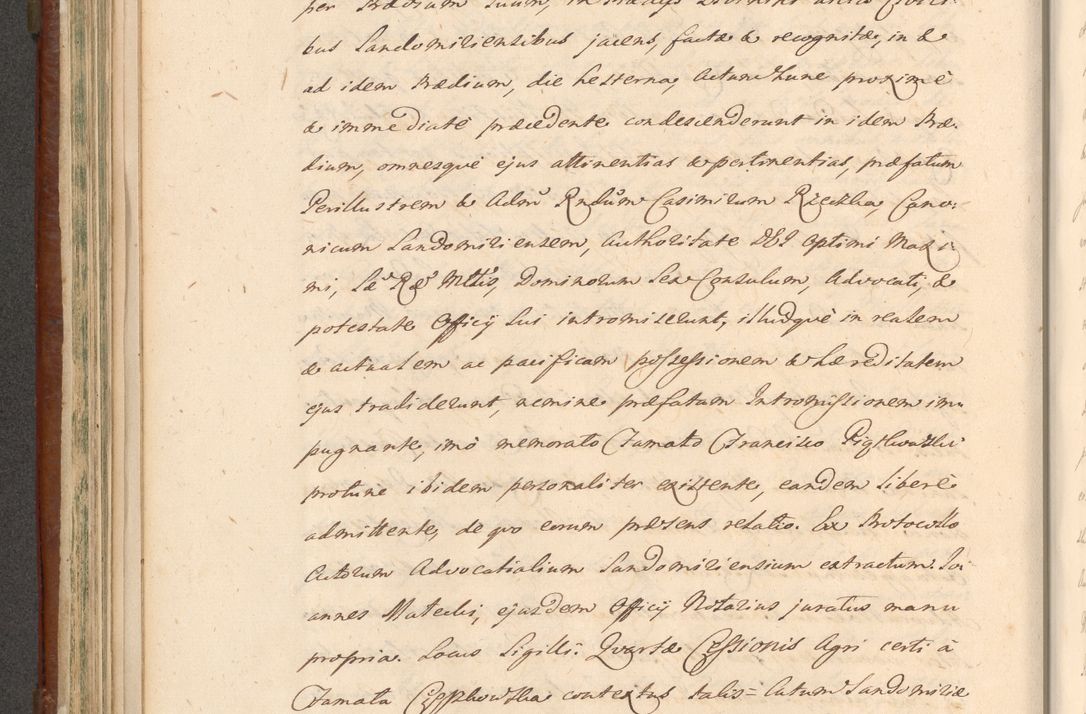 per Prædium suum, in
bus Sandomiriensibus jacens, factæ & recognitæ, in &
ad idem Prædium, die hesterna, Actum hunc proximè
& immediatè præcedente condescenderunt in idem Præ-
dium, omnesquè ejus attinentias & pertinentias, præfatum
Perillustrem & Admˢ Rndum Casimirum Rzeczka, Cano-
nicum Sandomiriensem, Authoritate DEI Optimi Maxi-
mi, Sæ Ræ Mttis, Dominorum Sex Consulum, Advocati, &
potestate Officij Sui intromiserunt, illudquè in realem
& actualem ac pacificam possessionem & hæreditatem
ejus tradiderunt, nemine præfatam Intromissionem im-
pugnante, imò memorato Famato Francisco
protunc ibidem personaliter existente, eandem liberè
admittente, de quo eorum præsens relatio. Ex Protocollo
Actorum Advocatialium Sandomiriensium extractum. Jo-
annes Mateclis, ejusdem Officij Notarius juratus manu
propria. Locus Sigilli. Quartæ Cessionis Agri certi à
Famata contextus talis= Actum Sandomiriæ